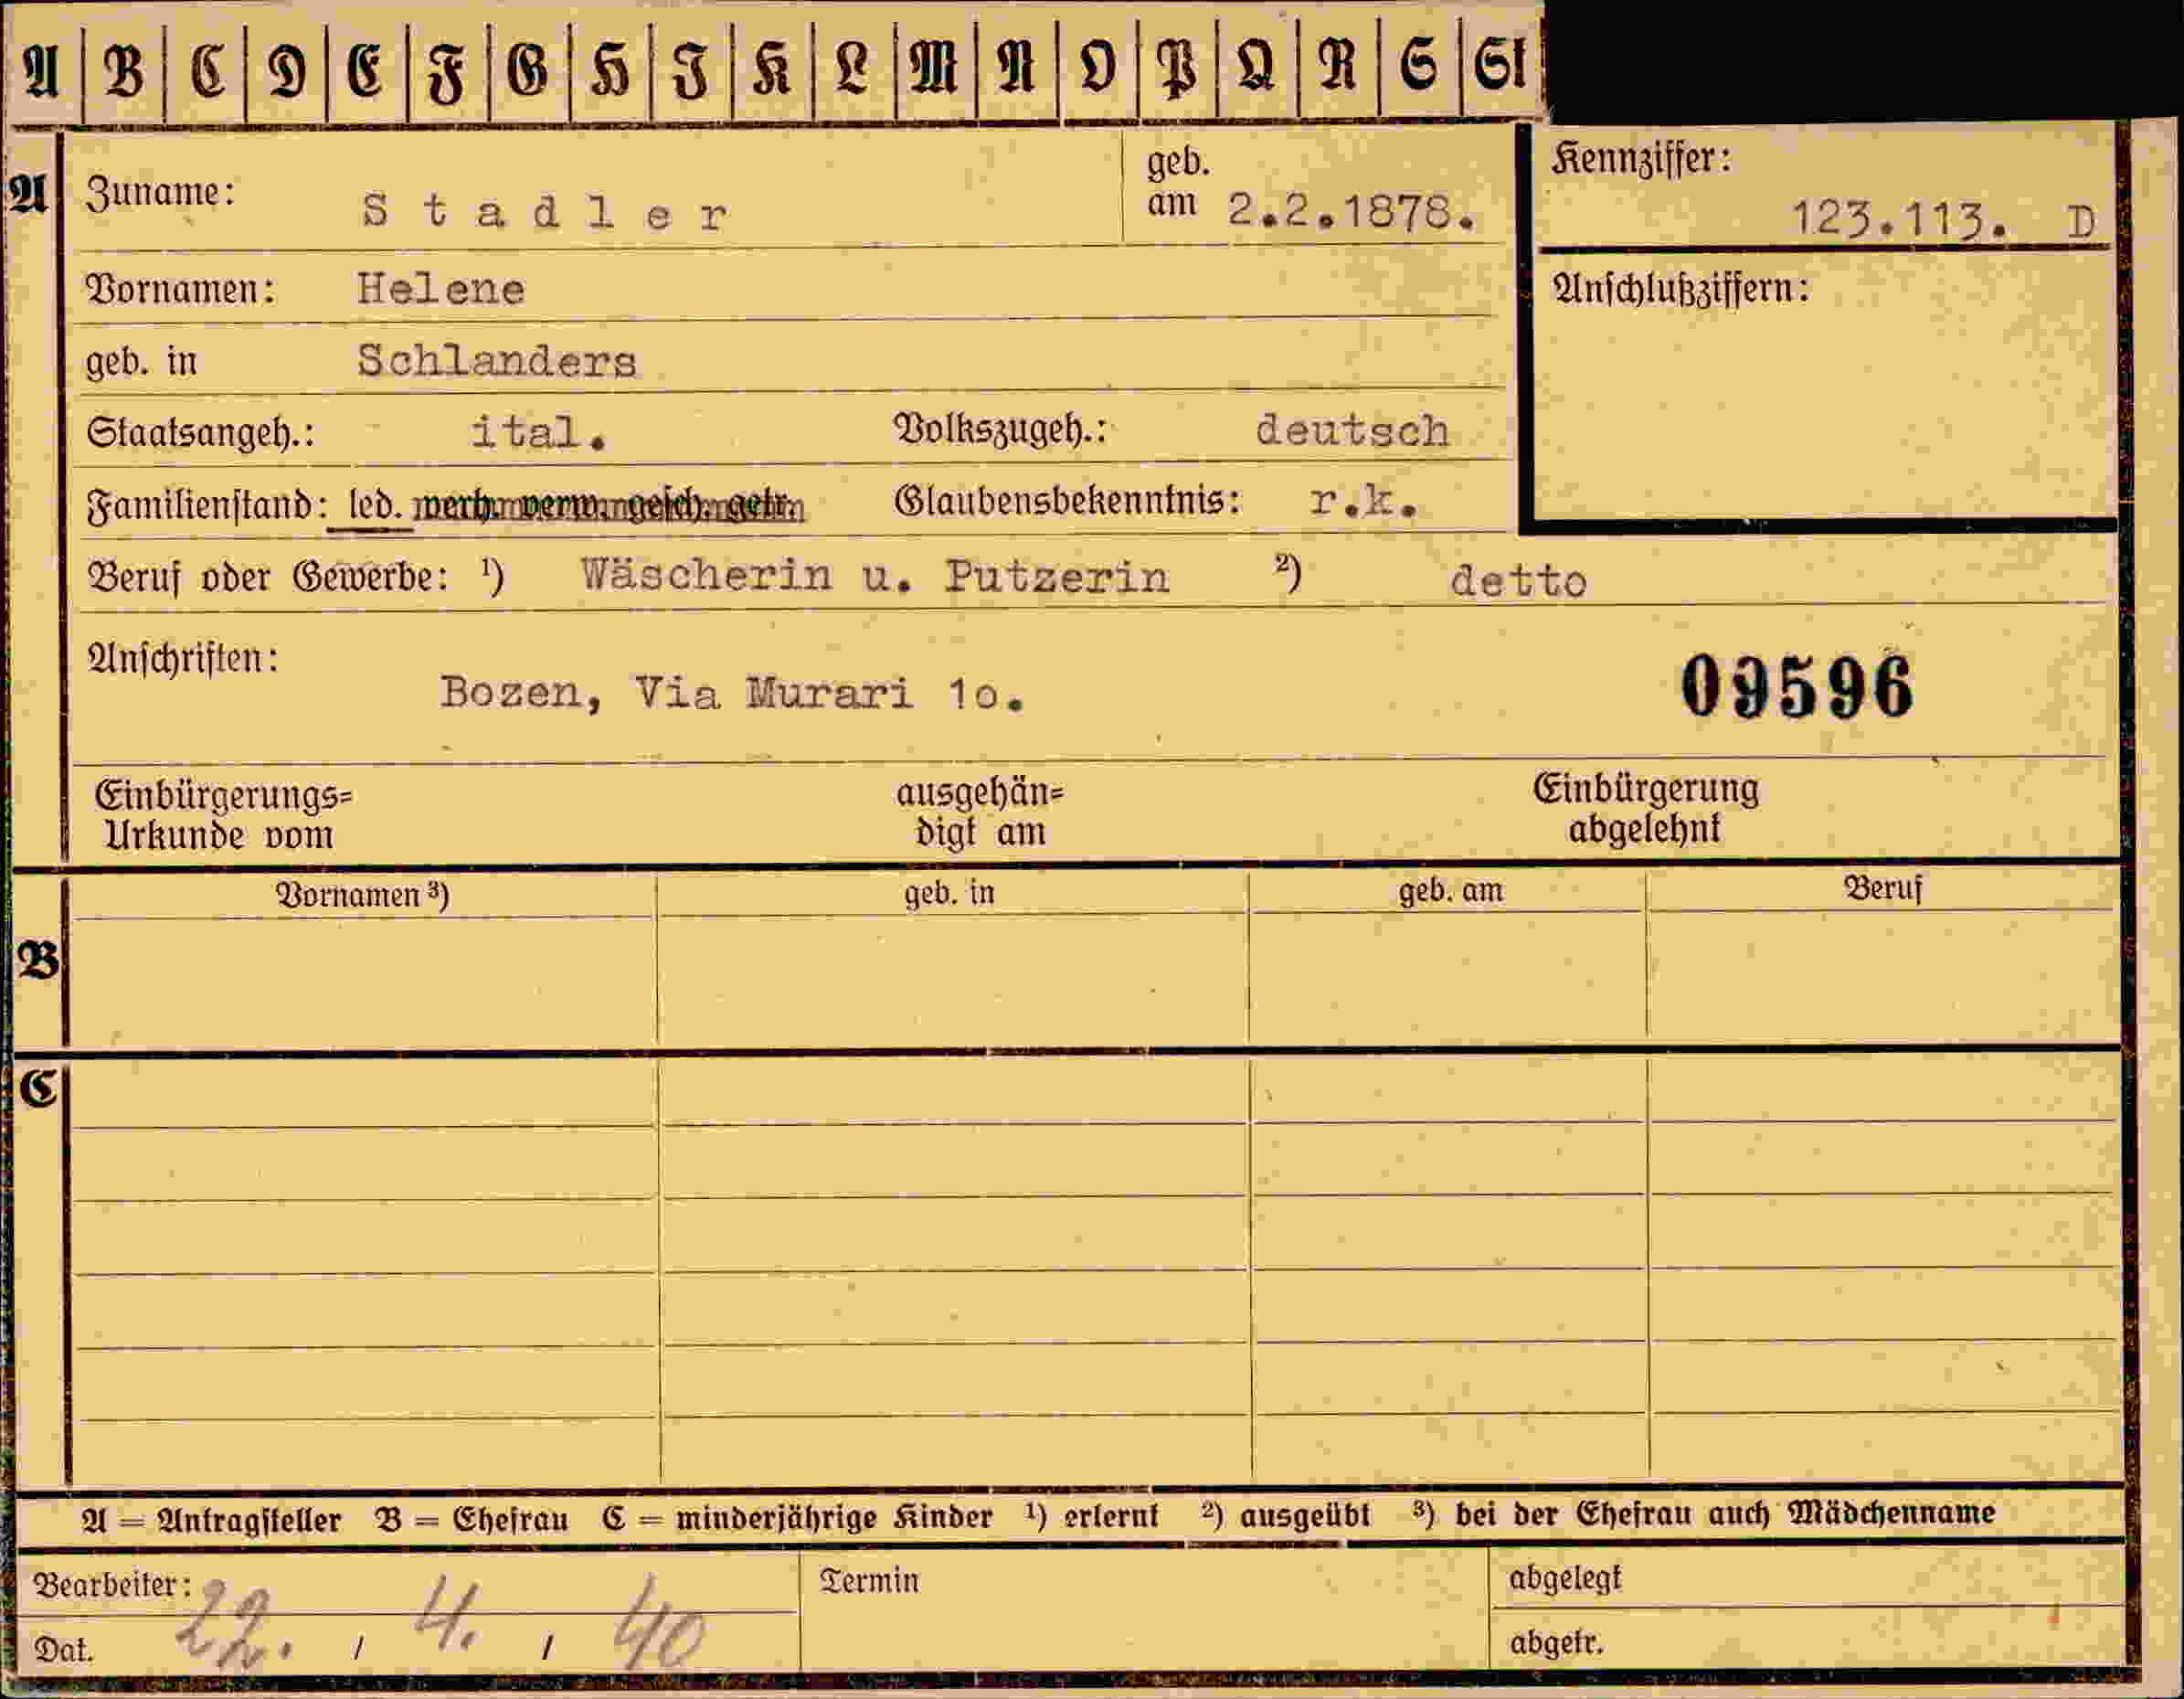 A B C D E F G H I K L M N O P Q R S St
A Zuname: Stadler geb. am 2.2.1878. Kennziffer: 123.113. D
Vornamen: Helene Anschlußziffern:
geb. in Schlanders
Staatsangeh.: ital. Volkszugeh.: deutsch
Familienstand: led. verh. verw. gesch. getr. Glaubensbekenntnis: r.k.
Beruf oder Gewerbe: ¹) Wäscherin u. Putzerin ²) detto
Anschriften: Bozen, Via Murari 1o. 09596
Einbürgerungs= ausgehän= Einbürgerung
Urkunde vom digt am abgelehnt
Vornamen ³) geb. in geb. am Beruf
B
C
A = Antragsteller B = Ehefrau C = minderjährige Kinder ¹) erlernt ²) ausgeübt ³) bei der Ehefrau auch Mädchenname
Bearbeiter: Termin abgelegt
Dat. 22. / 4. / 40 abgetr.